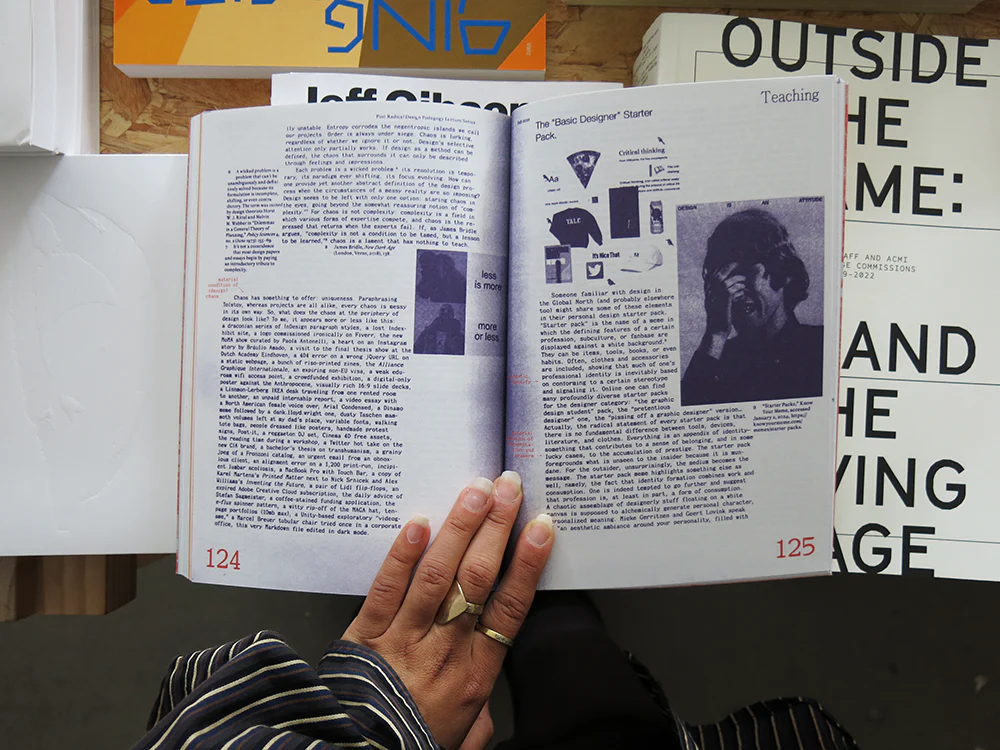 Jeff Gibson
OUTSIDE
THE
AME:
AFF AND ACMI
E COMMISSIONS
9-2022
AND
HE
VING
AGE
Post Radical Design Pedagogy Lecture Series
ily unstable. Entropy corrodes the negentropic islands we call
our projects. Order is always under siege. Chaos is lurking,
regardless of whether we ignore it or not. Design's selective
attention only partially works. If design as a method can be
defined, the chaos that surrounds it can only be described
through feelings and impressions.
Each problem is a wicked problem:⁶ its resolution is tempo-
rary, its paradigm ever shifting, its focus evolving. How can
one provide yet another abstract definition of the design pro-
cess when the circumstances of a messy reality are so imposing?
Design seems to be left with only one option: staring chaos in
the eyes, going beyond the somewhat reassuring notion of "com-
plexity."⁷ For chaos is not complexity: complexity is a field in
which various forms of expertise compete, and chaos is the re-
pressed that returns when the experts fail. If, as James Bridle
argues, "complexity is not a condition to be tamed, but a lesson
to be learned,"⁸ chaos is a lament that has nothing to teach.
6 A wicked problem is a
problem that can't be
unambiguously and defin-
itively solved because its
formulation is incomplete,
shifting, or even contra-
dictory. The term was coined
by design theorists Horst
W. J. Rittel and Melvin
M. Webber in "Dilemmas
in a General Theory of
Planning," Policy Sciences 4,
no. 2 (June 1973): 155–69.
7 It's not a coincidence
that most design papers
and essays begin by paying
an introductory tribute to
complexity.
8 James Bridle, New Dark Age
(London, Verso, 2018), 136
material
condition of
(design)
chaos
less
is more
more
or less
Chaos has something to offer: uniqueness. Paraphrasing
Tolstoy, whereas projects are all alike, every chaos is messy
in its own way. So, what does the chaos at the periphery of
design look like? To me, it appears more or less like this:
a draconian series of InDesign paragraph styles, a lost Index-
hibit site, a logo commissioned ironically on Fiverr, the new
MoMA show curated by Paola Antonelli, a heart on an Instagram
story by Bráulio Amado, a visit to the final thesis show at the
Dutch Academy Eindhoven, a 404 error on a wrong jQuery URL on
a static webpage, a bunch of riso-printed zines, the Alliance
Graphique Internationale, an expiring non-EU visa, a weak edu-
roam wifi access point, a crowdfunded exhibition, a digital-only
poster against the Anthropocene, visually rich 16:9 slide decks,
a Linnmon-Lerberg IKEA desk traveling from one rented room
to another, an unpaid internship report, a video essay with
a North American female voice over, Arial Condensed, a Dinamo
meme followed by a dark.lloyd.wright one, dusty Taschen mam-
moth volumes left at my dad's place, variable fonts, walking
tote bags, people dressed like posters, handmade protest
signs, Post-it, a reggaeton DJ set, Cinema 4D free assets,
the reading time during a workshop, a Twitter hot take on the
new CIA brand, a bachelor's thesis on transhumanism, a grainy
jpeg of a Fronzoni catalog, an urgent email from an obnox-
ious client, an alignment error on a 1,200 print-run, incipi-
ent lumbar scoliosis, a MacBook Pro with Touch Bar, a copy of
Karel Martens's Printed Matter next to Nick Srnicek and Alex
Williams's Inventing the Future, a pair of Lidl flip-flops, an
expired Adobe Creative Cloud subscription, the daily advice of
Stefan Sagmeister, a coffee-stained funding application, the
e-flux spinner pattern, a witty rip-off of the MAGA hat, ten-
page portfolios (10Mb max), a Unity-based exploratory "videog-
ame," a Marcel Breuer tubular chair tried once in a corporate
office, this very Markdown file edited in dark mode.
124
Teaching
The "Basic Designer" Starter
Pack.
Critical thinking
Aa
YALE
It's Nice That
DESIGN IS AN ATTITUDE
Someone familiar with design in
the Global North (and probably elsewhere
too) might share some of these elements
in their personal design starter pack.
"Starter pack" is the name of a meme in
which the defining features of a certain
profession, subculture, or fanbase are
displayed against a white background.⁹
They can be items, tools, books, or even
habits. Often, clothes and accessories
are included, showing that much of one's
professional identity is inevitably based
on conforming to a certain stereotype
and signaling it. Online one can find
many profoundly diverse starter packs
for the designer category: "the graphic
design student" pack, the "pretentious
designer" one, the "pissing off a graphic designer" version…
Actually, the radical statement of every starter pack is that
there is no fundamental difference between tools, devices,
literature, and clothes. Everything is an appendix of identity—
something that contributes to a sense of belonging, and in some
lucky cases, to the accumulation of prestige. The starter pack
foregrounds what is unseen to the insider because it is mun-
dane. For the outsider, unsurprisingly, the medium becomes the
message. The starter pack meme highlights something else as
well, namely, the fact that identity formation combines work and
consumption. One is indeed tempted to go further and suggest
that profession is, at least in part, a form of consumption.
A chaotic assemblage of designerly stuff floating on a white
canvas is supposed to alchemically generate personal character,
personalized meaning. Mieke Gerritzen and Geert Lovink speak
"an aesthetic ambiance around your personality, filled with
9 "Starter Packs," Know
Your Meme, accessed
January 1, 2024, https://
knowyourmeme.com/
memes/starter-packs.
125